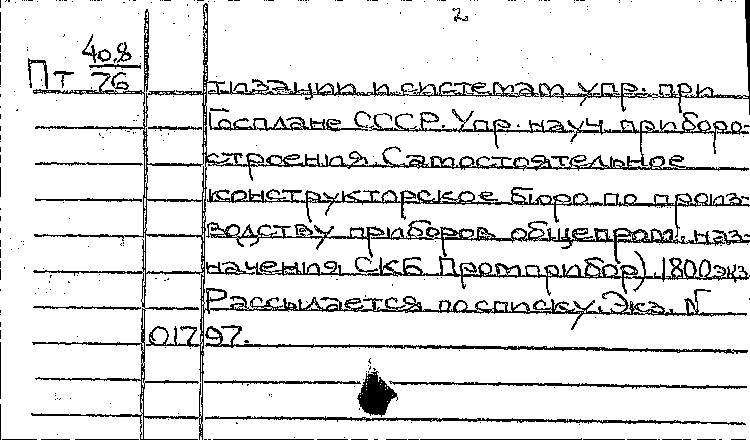 2
Пт 40.8/76
тизации и системам упр. при
Госплане СССР. Упр. науч. приборо-
строения. Самостоятельное
конструкторское бюро по произ-
водству приборов общепром. наз-
начения СКБ Промприбор) 1800экз
Рассылается по списку. Экз. №
01797.